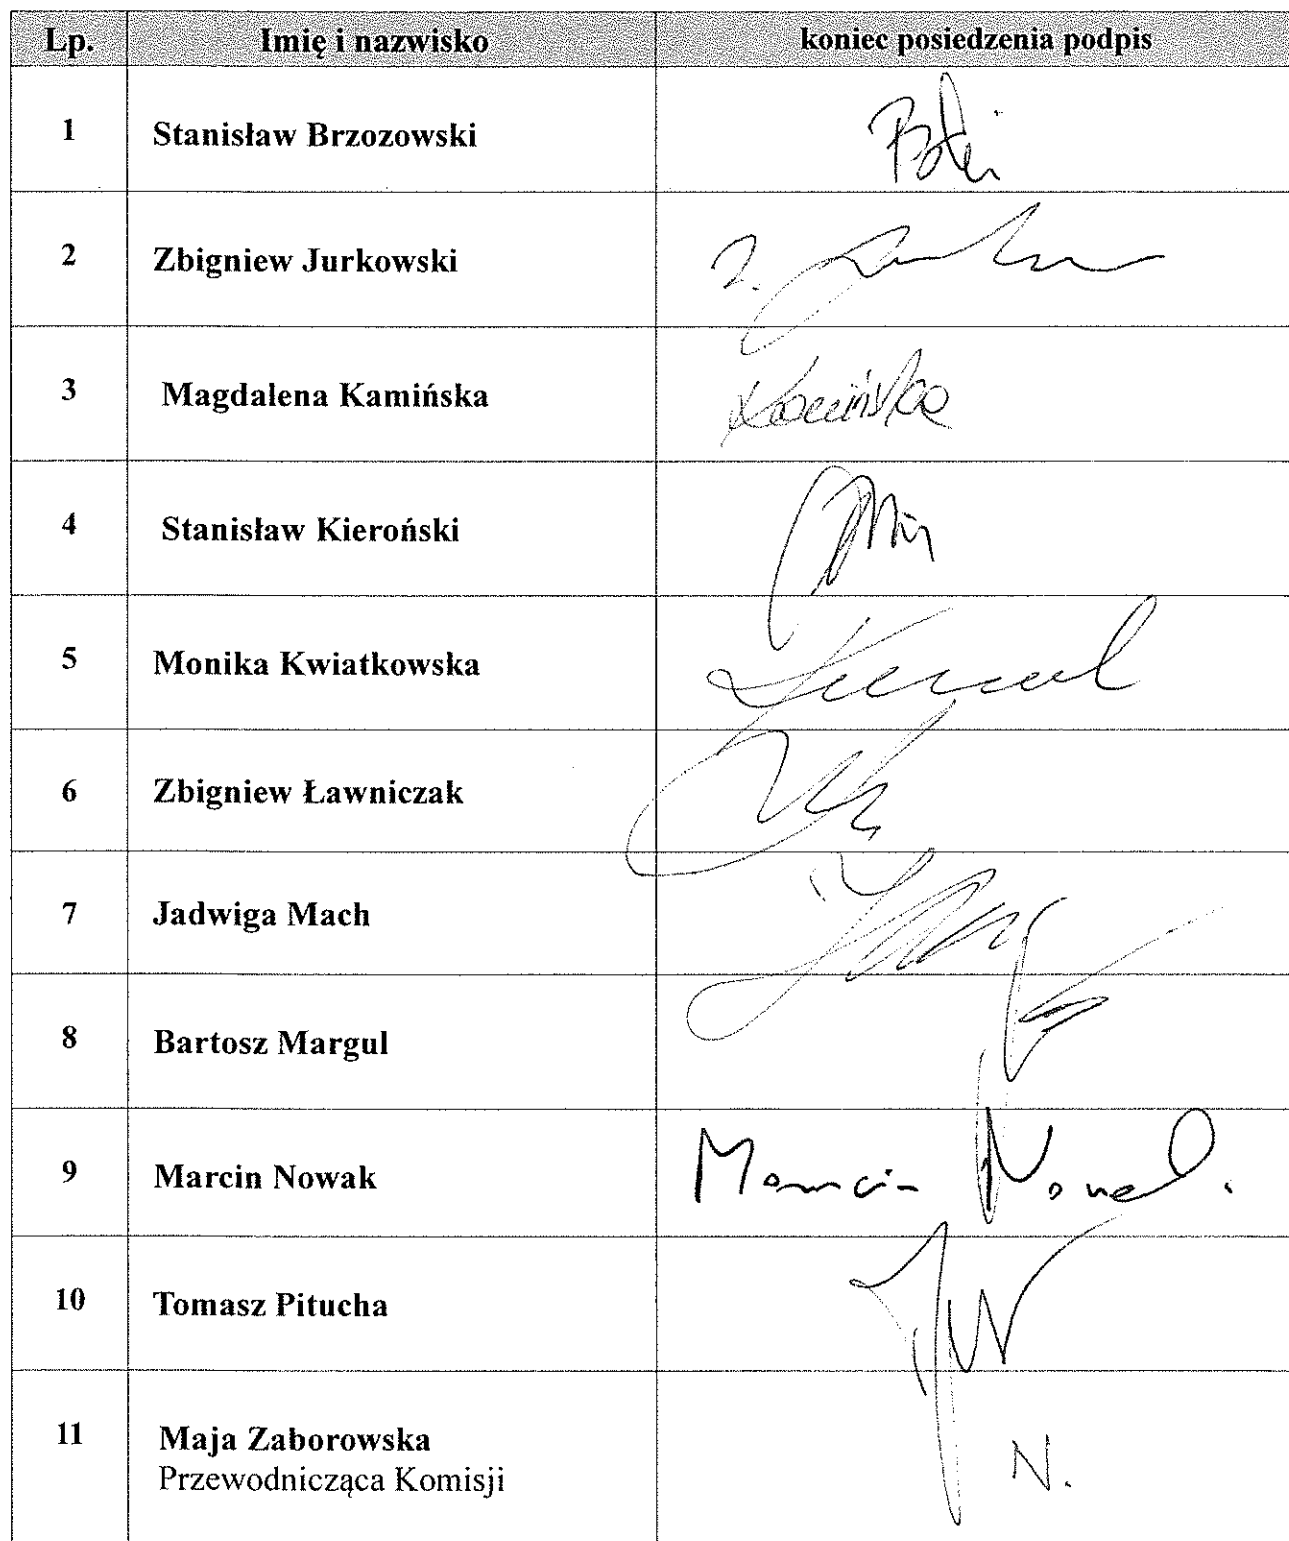 Lp. Imię i nazwisko koniec posiedzenia podpis
1 Stanisław Brzozowski
2 Zbigniew Jurkowski
3 Magdalena Kamińska Kamińska
4 Stanisław Kieroński
5 Monika Kwiatkowska
6 Zbigniew Ławniczak
7 Jadwiga Mach
8 Bartosz Margul
9 Marcin Nowak Marcin Nowak.
10 Tomasz Pitucha
11 Maja Zaborowska N.
Przewodnicząca Komisji